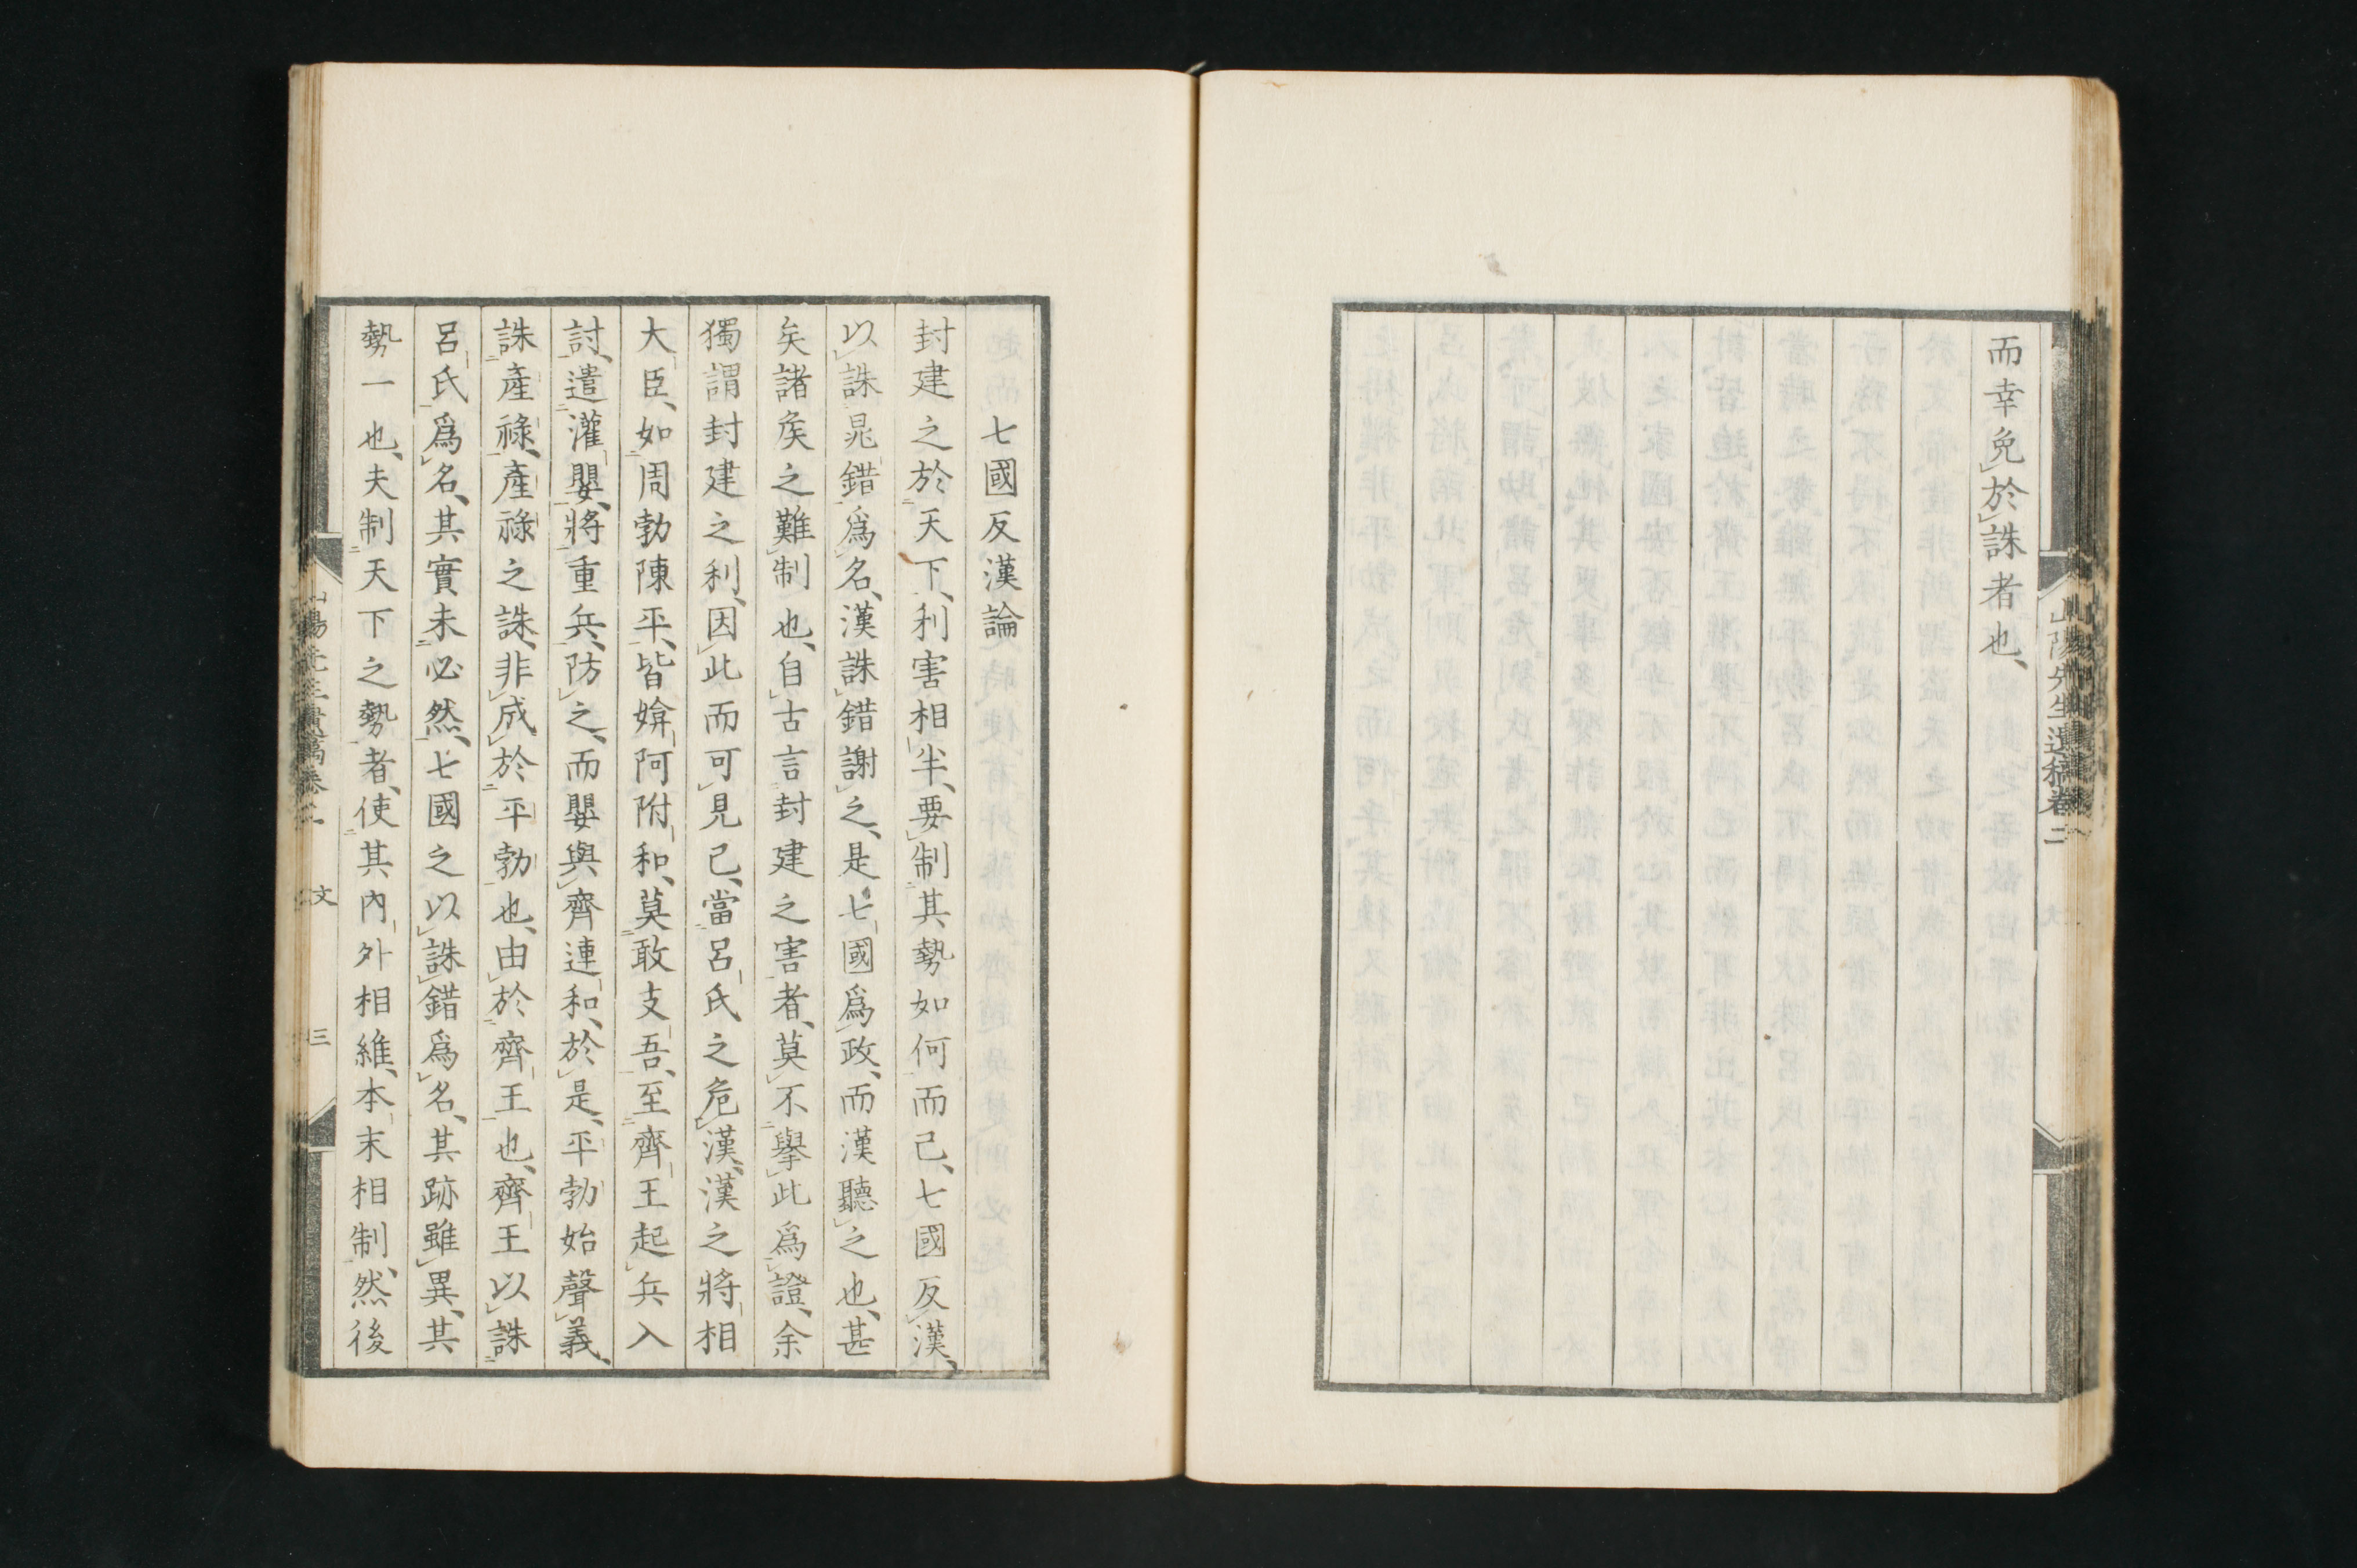 而幸免於誅者也、
山陽先生遺稿卷二
七國反漢論
封建之於天下、利害相半、要制其勢如何而已、七國反漢、
以誅晁錯爲名、漢誅錯謝之、是七國爲政、而漢聽之也、甚
矣諸矦之難制也、自古言封建之害者、莫不擧此爲證、余
獨謂封建之利、因此而可見已、當呂氏之危漢、漢之將相
大臣、如周勃陳平、皆媕阿附和、莫敢支吾、至齊王起兵入
討、遣灌嬰、將重兵、防之、而嬰與齊連和、於是、平勃始聲義、
誅產祿、產祿之誅、非成於平勃也、由於齊王也、齊王以誅
呂氏爲名、其實未必然、七國之以誅錯爲名、其跡雖異、其
勢一也、夫制天下之勢者、使其內外相維、本末相制、然後
山陽先生遺稿卷二 文 三